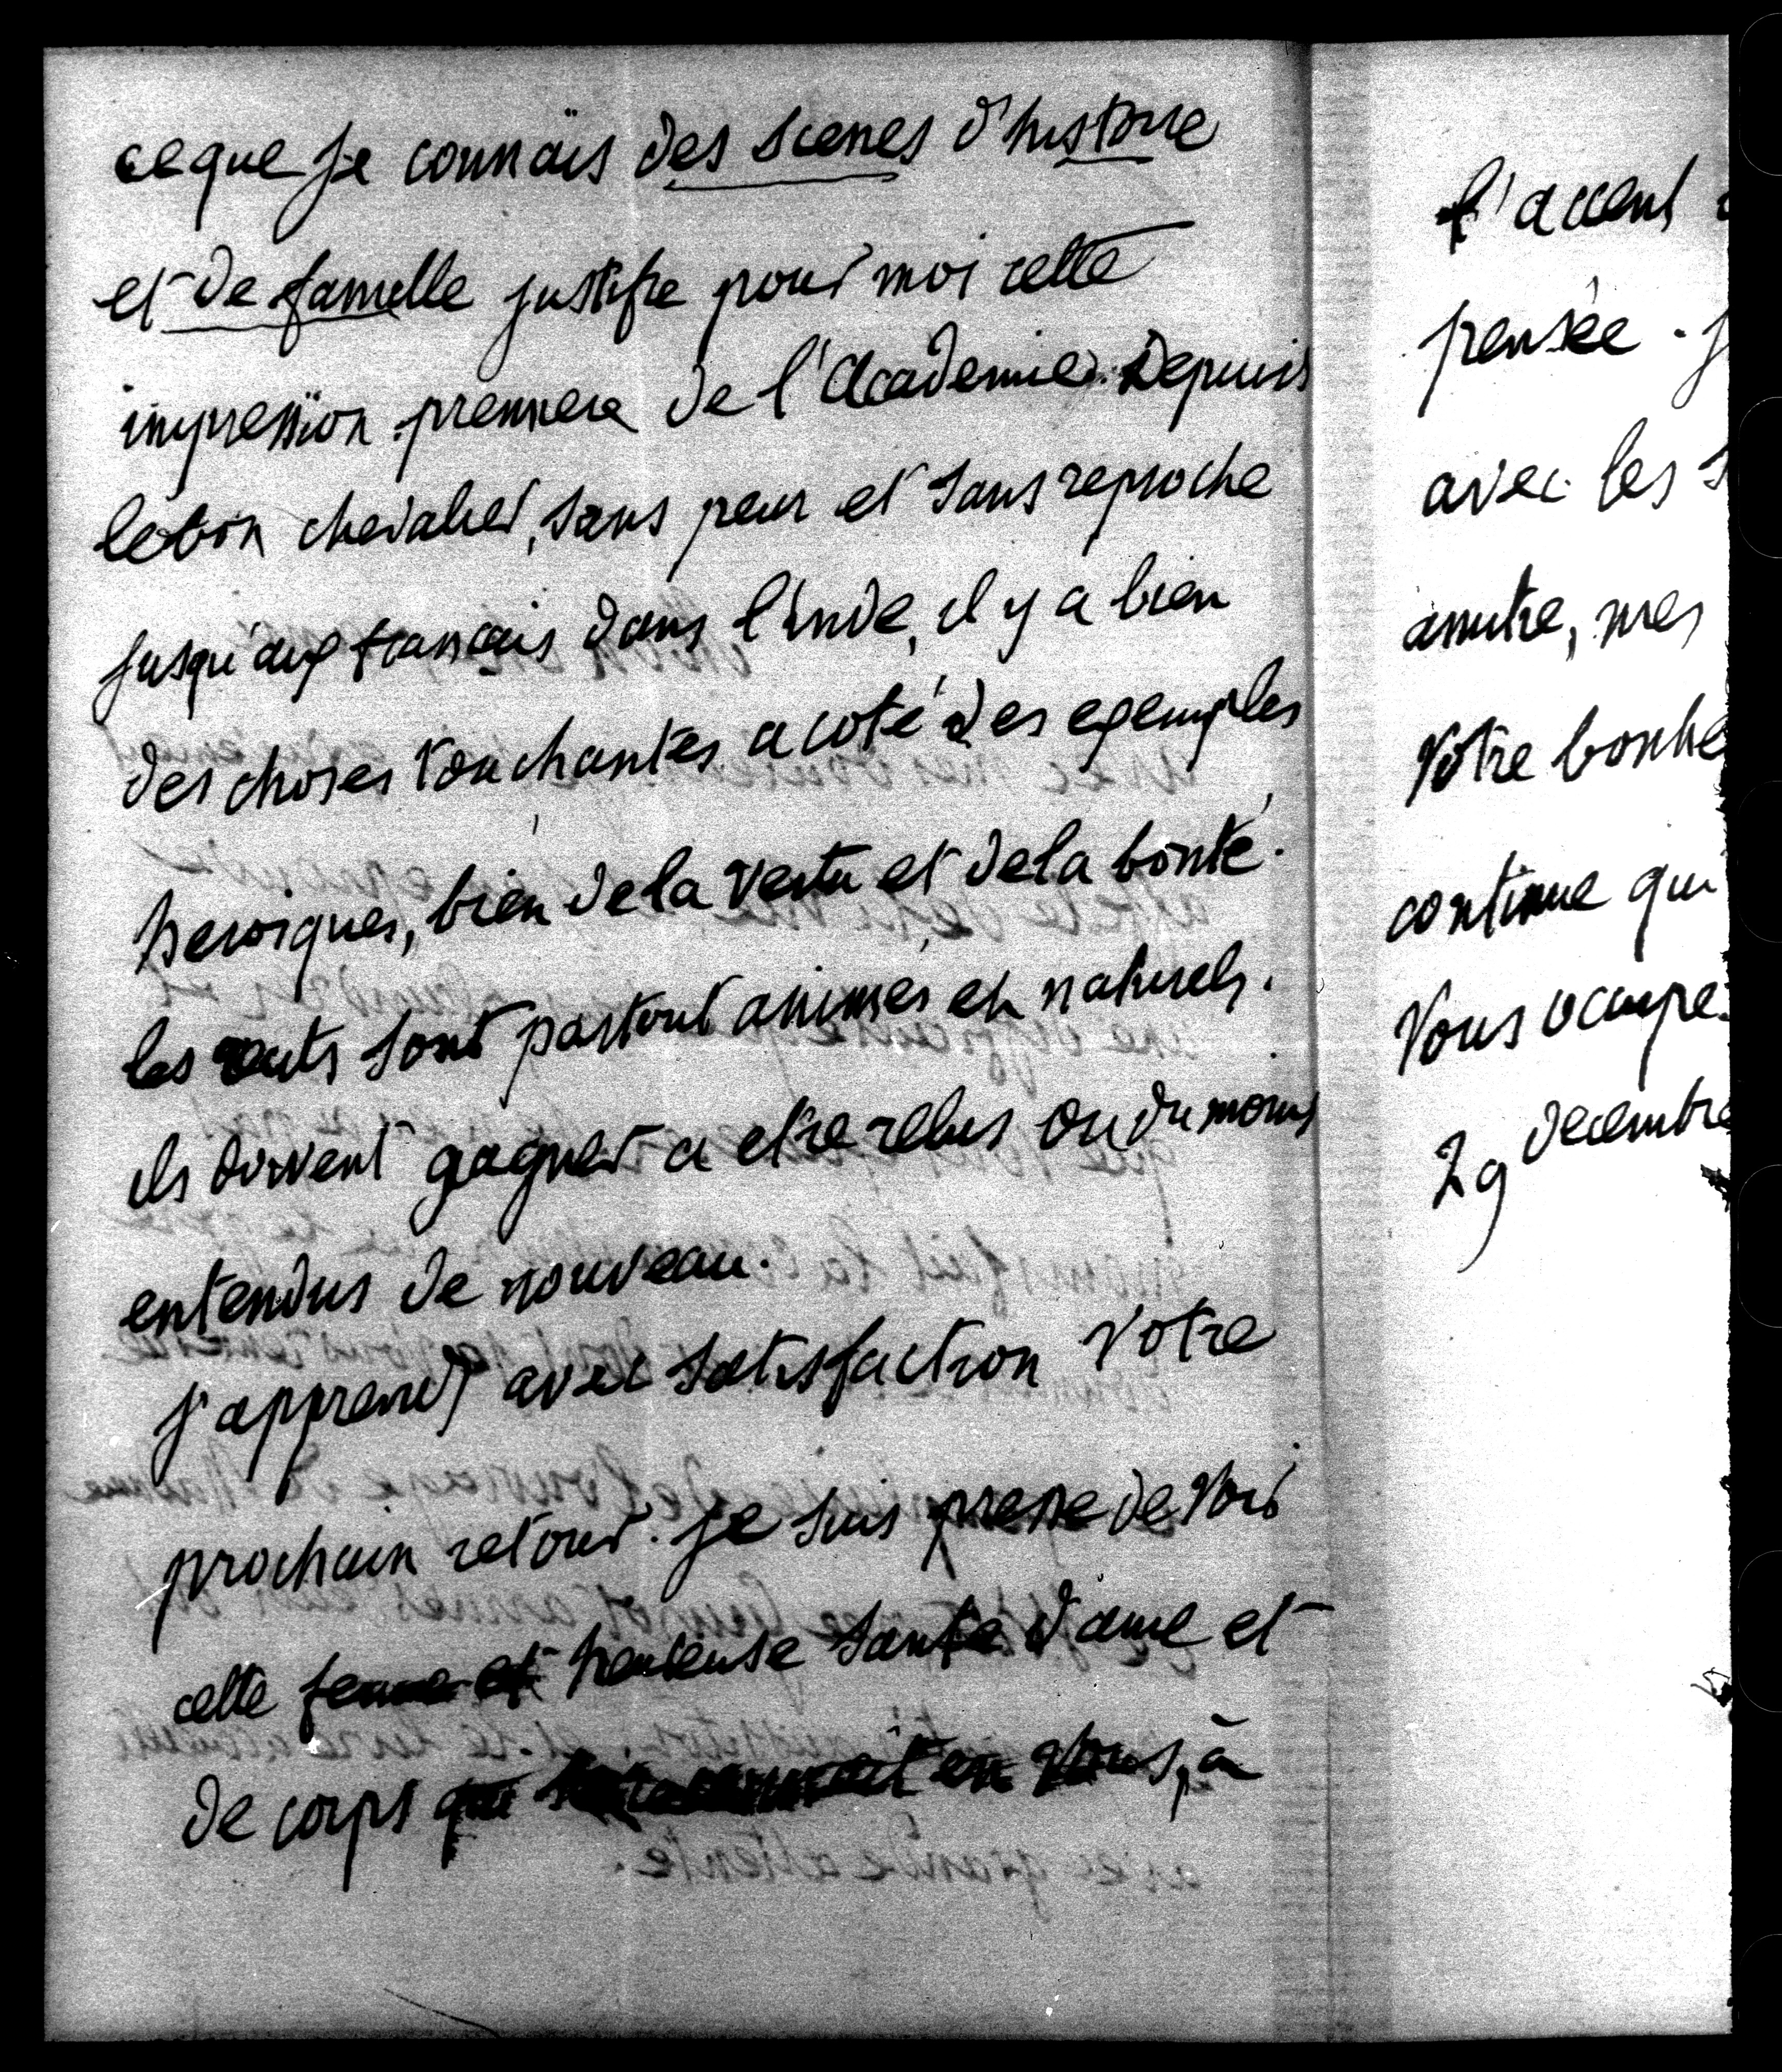 ce que je connais des scenes d'histoire
et de famille justifie pour moi cette
impression premiere de l'Academie. Depuis
le bon chevalier, sans peur et sans reproche
jusqu'aux français dans l'inde, il y a bien
des choses touchantes a coté des exemples
heroiques, bien de la vertu et de la bonté.
les recits sont partout animés et naturels.
ils doivent gagner a etre relus ou du moins
entendus de nouveau.
J'apprends avec satisfaction votre
prochain retour. Je suis presse de voir
cette ferme et heureuse santé d'ame et
de corps qui en vous, à
l'accent
pensée. J
avec les s
amitié, mes
Votre bonhe
continue qui
Vous occupe
29 decembre